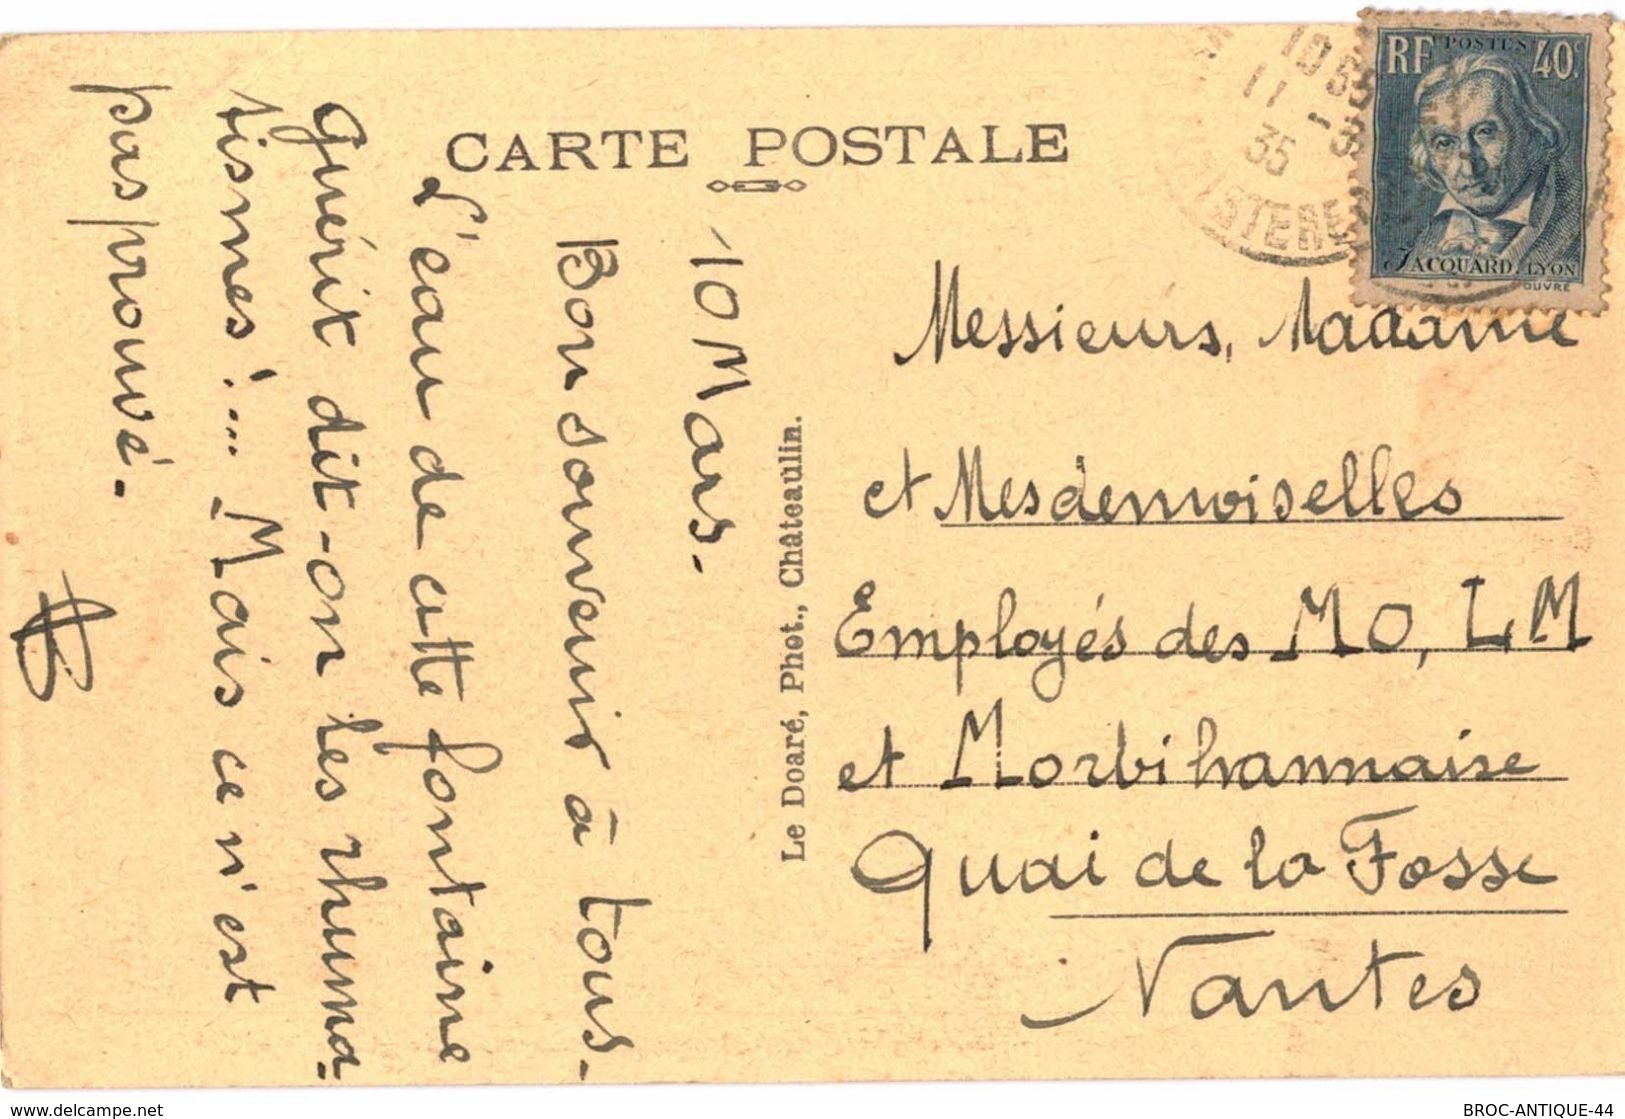 CARTE POSTALE
RF POSTES 40c
JACQUARD. LYON
OUVRÉ
10 55
11
35
10 Mars -
Bon souvenir à tous -
L'eau de cette fontaine
Guérit dit-on les rhuma-
tismes !... Mais ce n'est
pas prouvé. -
Le Doaré, Phot., Châteaulin.
Messieurs, Madame
et Mesdemoiselles
Employés des MO, LM
et Morbihannaise
Quai de la Fosse
Nantes
www.delcampe.net
BROC-ANTIQUE-44